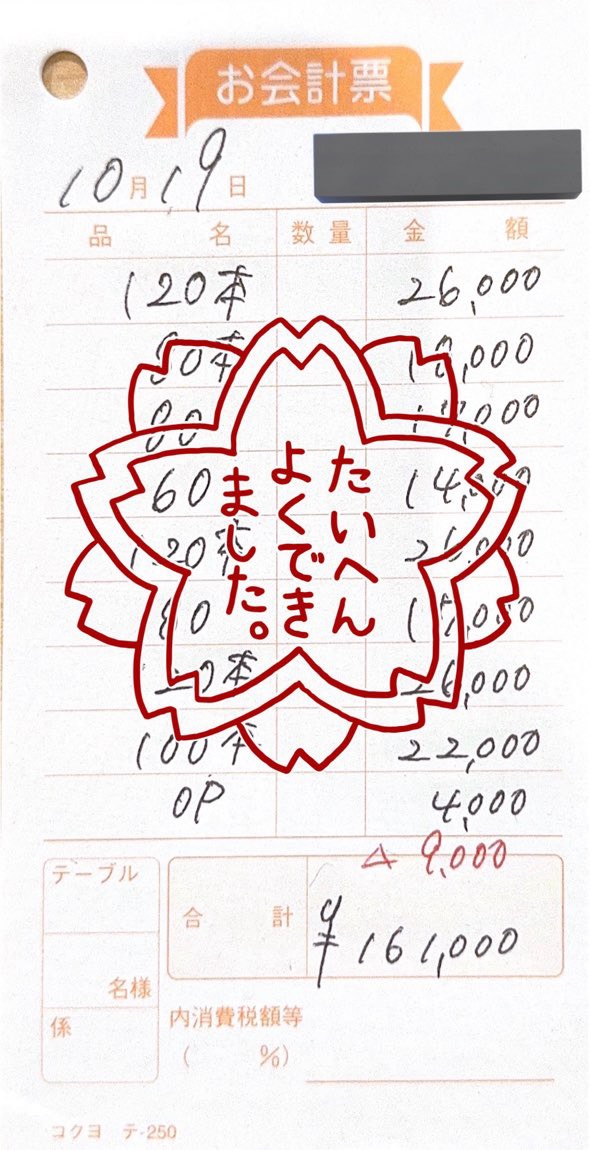 お会計票
10月19日
品名 数量 金額
120本 26,000
60 14,000
120本 26,000
120本 26,000
100本 22,000
OP 4,000
△ 9,000
たいへん
よくでき
ました。
テーブル
合計 ¥161,000
名様
係
内消費税額等
( %)
コクヨ テ-250